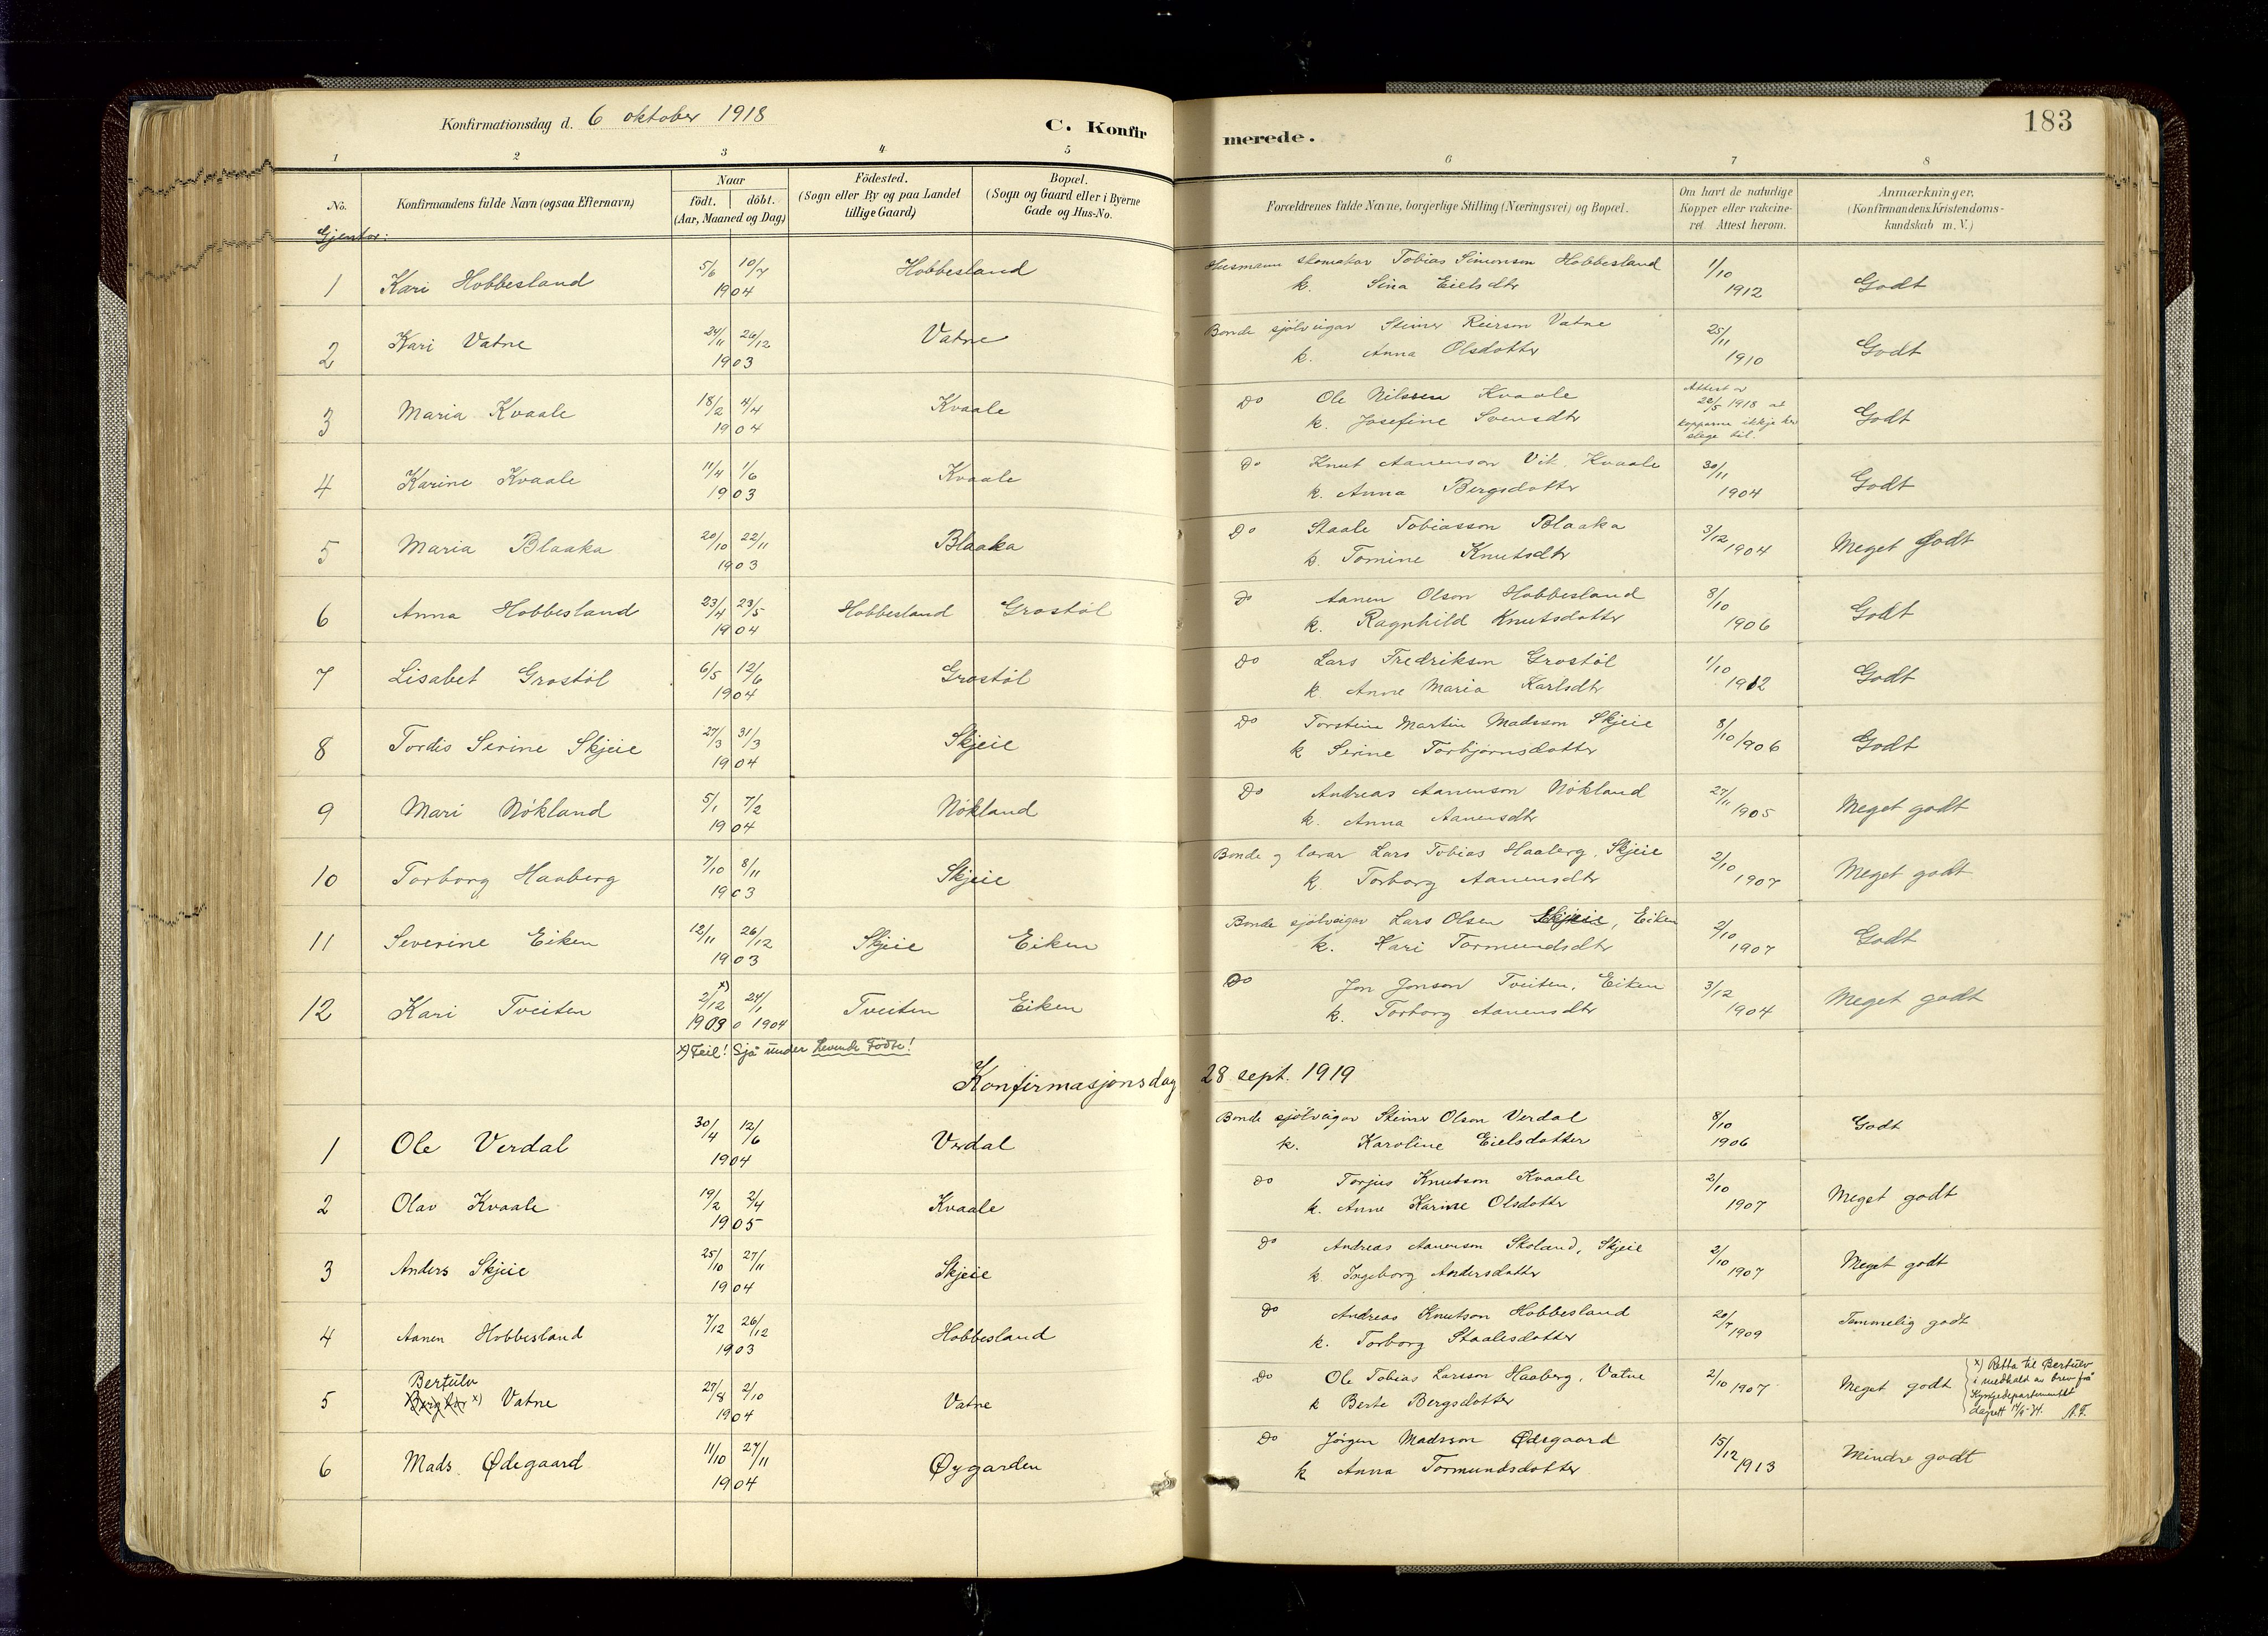 Konfirmationsdag d. 6 oktober 1918
C. Konfirmerede.
183
1 2 3 4 5 6 7 8
No.
Konfirmandens fulde Navn (ogsaa Efternavn)
Naar
födt. döbt.
(Aar, Maaned og Dag)
Födested.
(Sogn eller By og paa Landet
tillige Gaard)
Bopæl.
(Sogn og Gaard eller i Byerne
Gade og Hus-No.
Forældrenes fulde Navne, borgerlige Stilling (Næringsvei) og Bopæl.
Om havt de naturlige
Kopper eller vakcine-
ret. Attest herom.
Anmærkninger.
(Konfirmandens Kristendoms-
kundskab m. V.)
Gjentor:
1 Kari Hobbesland 5/6 10/7 1904 Hobbesland Husmann skomakar Tobias Simonson Hobbesland 1/10 1912 Godt
k. Sina Eielsdtr
2 Kari Vatne 24/11 26/12 1903 Vatne Bonde sjölveigar Steiner Reirson Vatne 25/11 1910 Godt
k. Anna Olsdotter
3 Maria Kvaale 18/2 4/4 1904 Kvaale Do Ole Nilssen Kvaale Attest av 22/5 1918 at kopparne ikkje har slege til. Godt
k. Josefine Svensdtr
4 Karine Kvaale 11/4 1/6 1903 Kvaale Do Knut Aanenson Vit. Kvaale 30/11 1904 Godt
k. Anna Bergsdotter
5 Maria Blaaka 20/10 22/11 1903 Blaaka Do Staale Tobiasson Blaaka 3/12 1904 Meget Godt
k. Tomine Knutsdtr
6 Anna Hobbesland 23/4 23/5 1904 Hobbesland Grostöl Do Aanen Olson Hobbesland 8/10 1906 Godt
k. Ragnhild Knutsdotter
7 Lisabet Grostöl 6/5 12/6 1904 Grostöl Do Lars Fredrikson Grostöl 1/10 1912 Godt
k. Anne Maria Karlsdtr
8 Tordis Serine Skjeie 27/3 31/3 1904 Skjeie Do Torstein Martin Madsson Skjeie 8/10 1906 Godt
k Serine Torbjørnsdotter
9 Mari Nökland 5/1 7/2 1904 Nökland Do Andreas Aanenson Nökland 27/11 1905 Meget godt
k. Anna Aanensdtr
10 Torborg Haaberg 7/10 8/11 1903 Skjeie Bonde og lærar Lars Tobias Haaberg, Skjeie 2/10 1907 Meget godt
k. Torborg Aanensdtr
11 Severine Eiken 12/11 26/12 1903 Skjeie Eiken Bonde sjölveigar Lars Olsen Skjeie, Eiken 2/10 1907 Godt
k. Kari Tormundsdtr
12 Kari Tveiten 2/12 x) 24/1 1903 o 1904 Tveiten Eiken Do Jon Jonson Tveiten, Eiken 3/12 1904 Meget godt
k. Torborg Aanensdtr
x) Feil! Sjå under Levende Fødte!
Konfirmasjonsdag 28 sept. 1919
1 Ole Verdal 30/4 12/6 1904 Verdal Bonde sjölveigar Steiner Olson Verdal 8/10 1906 Godt
k. Karoline Eielsdotter
2 Olav Kvaale 19/2 2/4 1905 Kvaale Do Torjus Knutson Kvaale 2/10 1907 Meget godt
k. Anne Karine Olsdotter
3 Anders Skjeie 25/10 27/11 1904 Skjeie Do Andreas Aanenson Skoland, Skjeie 2/10 1907 Meget godt
k. Ingeborg Andersdotter
4 Aanen Hobbesland 7/12 26/12 1903 Hobbesland Do Andreas Knutson Hobbesland 20/7 1909 Temmelig godt
k. Torborg Staalesdotter
Bertulv
5 x) Vatne 27/8 2/10 1904 Vatne Do Ole Tobias Larsson Haaberg, Vatne 2/10 1907 Meget godt
k Berte Bergsdotter
x) Retta til Bertulv
i medhald av brev frå
Kyrkjedepartementet
6 Mads Ødegaard 11/10 27/11 1904 Øygarden Do Jörgen Madsson Ødegaard 15/12 1913 Mindre godt
k Anna Tormundsdotter